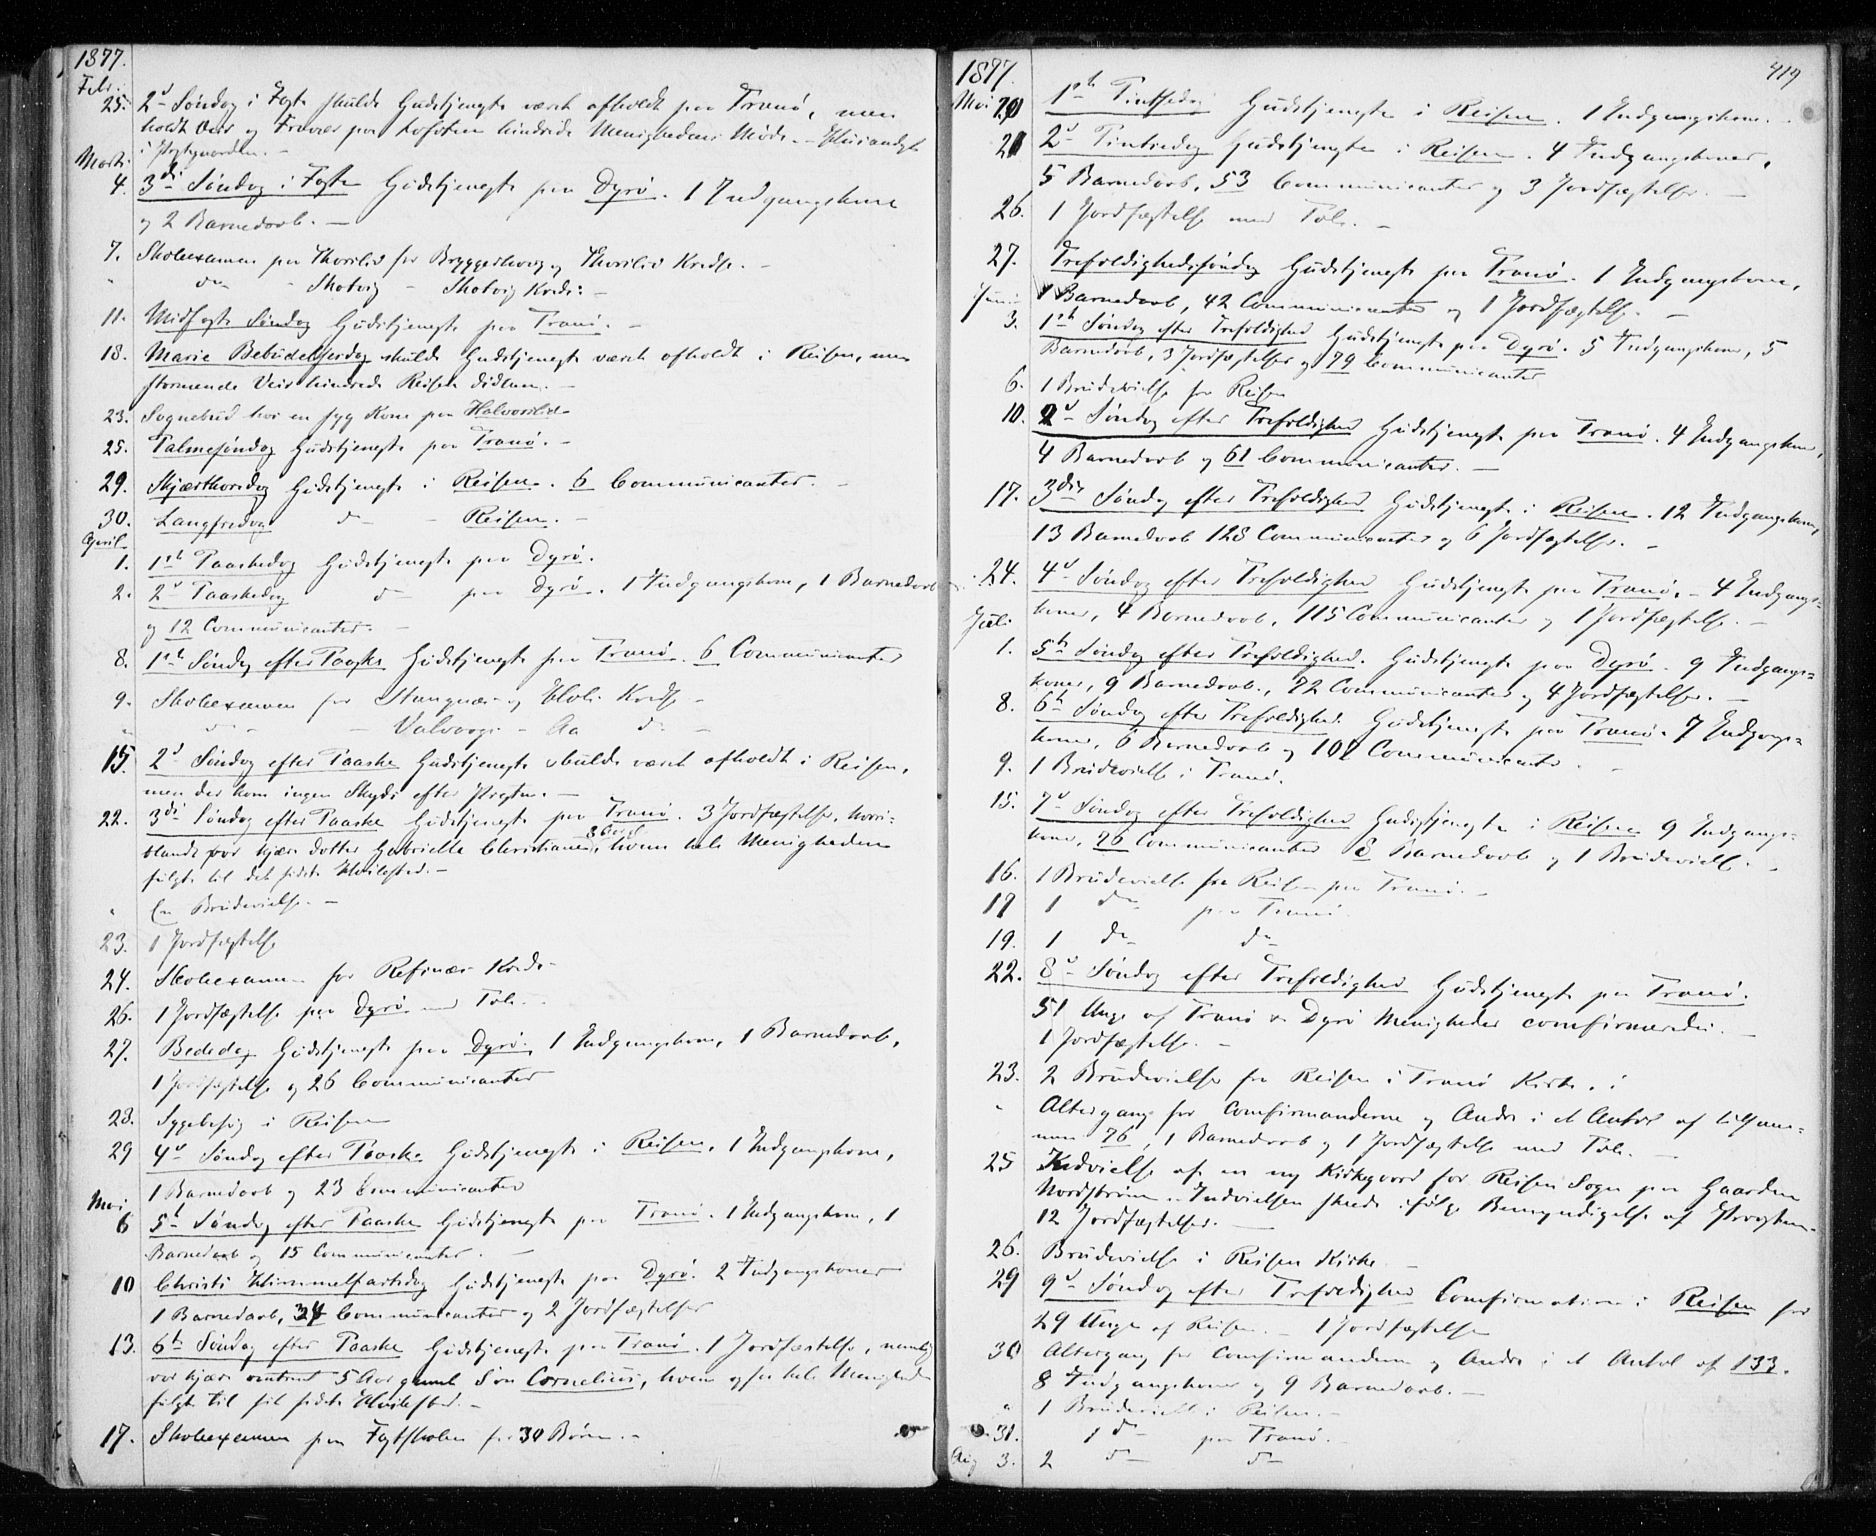 1877.
Febr.
25. 2den Søndag i Faste skulde Gudstjeneste været afholdt paa Tranø, men
holdt Veir og Fravær paa Lofoten hindrede Menighedens Møde. - Husandagt
i Præstegaarden. -
Marts
4. 3die Søndag i Faste Gudstjeneste paa Dyrø. 1 Indgangskone
og 2 Barnedaab. -
7. Skoleexamen paa Thoralid for Bryggerhaug og Thoralid Kredse. -
" do - Skatvig - Skatvig Kreds. -
11. Midfaste Søndag Gudstjeneste paa Tranø. -
18. Mariæ Bebudelsesdag skulde Gudstjeneste været afholdt i Reisen, men
stormende Veir hindrede Reisen didhen. -
23. Sognebud hos en syg Kone paa
25. Palmesøndag Gudstjeneste paa Tranø. -
29. Skjærthorsdag Gudstjeneste i Reisen. 6 Communicanter. -
30. Langfredag do - Reisen. -
April
1. 1ste Paaskedag Gudstjeneste paa Dyrø.
2. 2den Paaskedag do paa Dyrø. 1 Indgangskone, 1 Barnedaab
og 12 Communicanter. -
8. 1ste Søndag efter Paaske Gudstjeneste paa Tranø. 6 Communicanter
9. Skoleexamen for Stangnæs og Kreds -
" do - Valvaag - Aa do -
15. 2den Søndag efter Paaske Gudstjeneste skulde været afholdt i Reisen,
men der kom ingen Skyds efter Præsten. -
22. 3die Søndag efter Paaske Gudstjeneste paa Tranø. 3 Jordfæstelser, hvori-
blandt vor kjære Datter Gabrielle Christiane, hvem hele Menigheden
fulgte til det sidste Hvilested. -
" En Brudevielse. -
23. 1 Jordfæstelse
24. Skoleexamen for Refsnæs Kreds -
26. 1 Jordfæstelse paa Dyrø med Tale. -
27. Bededag Gudstjeneste paa Dyrø. 1 Indgangskone, 1 Barnedaab,
1 Jordfæstelse og 26 Communicanter
28. Sygebesøg i Reisen
29 4de Søndag efter Paaske Gudstjeneste i Reisen. 1 Indgangskone,
1 Barnedaab og 23 Communicanter
Mai
6 5te Søndag efter Paaske Gudstjeneste paa Tranø. 1 Indgangskone, 1
Barnedaab og 15 Communicanter. -
10 Christi Himmelfartsdag Gudstjeneste paa Dyrø. 2 Indgangskoner
1 Barnedaab, 34 Communicanter og 2 Jordfæstelser
13. 6te Søndag efter Paaske Gudstjeneste paa Tranø. 1 Jordfæstelse, nemlig
vor kjære omtrent 5 Aar gamle Søn Cornelius, hvem ogsaa hele Menigheden
fulgte til sit sidste Hvilested. -
17. Skoleexamen paa Fastskolen for 30 Børn. -
1877. 419
Mai 20 1ste Pintsedag Gudstjeneste i Reisen. 1 Indgangskone. -
21 2den Pintsedag Gudstjeneste i Reisen. 4 Indgangskoner,
5 Barnedaab, 53 Communicanter og 3 Jordfæstelser. -
26. 1 Jordfæstelse med Tale. -
27. Trefoldighedssøndag Gudstjeneste paa Tranø. 1 Indgangskone,
1 Barnedaab, 42 Communicanter og 1 Jordfæstelse. -
Juni
3. 1ste Søndag efter Trefoldighed Gudstjeneste paa Dyrø. 5 Indgangskoner, 5
Barnedaab, 3 Jordfæstelser og 79 Communicanter
6. 1 Brudevielse fra Reisen
10. 2den Søndag efter Trefoldighed Gudstjeneste paa Tranø. 4 Indgangskoner,
4 Barnedaab og 61 Communicanter. -
17. 3die Søndag efter Trefoldighed Gudstjeneste i Reisen. 12 Indgangskoner,
13 Barnedaab 128 Communicanter og 6 Jordfæstelser. -
24. 4de Søndag efter Trefoldighed Gudstjeneste paa Tranø. - 4 Indgangs=
koner, 4 Barnedaab, 115 Communicanter og 1 Jordfæstelse. -
Juli
1. 5te Søndag efter Trefoldighed. Gudstjeneste paa Dyrø. 9 Indgangs=
koner, 9 Barnedaab, 72 Communicanter og 4 Jordfæstelser. -
8. 6te Søndag efter Trefoldighed Gudstjeneste paa Tranø. 7 Indgangs=
koner, 6 Barnedaab og 101 Communicanter -
9. 1 Brudevielse i Tranø.
15. 7de Søndag efter Trefoldighed Gudstjeneste i Reisen 9 Indgangs=
koner, 76 Communicanter 8 Barnedaab og 1 Brudevielse. -
16. 1 Brudevielse fra Reisen paa Tranø. -
17 1 do paa Tranø.
19. 1 do do
22. 8de Søndag efter Trefoldighed Gudstjeneste paa Tranø.
51 Unge af Tranø og Dyrø Menigheder comfirmeredes. -
1 Jordfæstelse. -
23. 2 Brudevielser fra Reisen i Tranø Kirke.
" Altergang for Comfirmanderne og Andre i et Antal af tilsam=
men 76, 1 Barnedaab og 1 Jordfæstelse med Tale. -
25 Indvielse af en ny Kirkegaard for Reisen Sogn paa Gaarden
Nordstrøm. - Indvielsen skede ifølge Bemyndigelse af Provsten.
12 Jordfæstelser. -
26. Brudevielse i Reisen Kirke. -
29 9de Søndag efter Trefoldighed Comfirmation i Reisen for
29 Unge af Reisen. - 1 Jordfæstelse
30 Altergang for Comfirmanderne og Andre i et Antal af 133.
8 Indgangskoner og 9 Barnedaab. -
" 1 Brudevielse i Reisen. -
31. 1 do paa Tranø. -
Aug 3. 2 do do